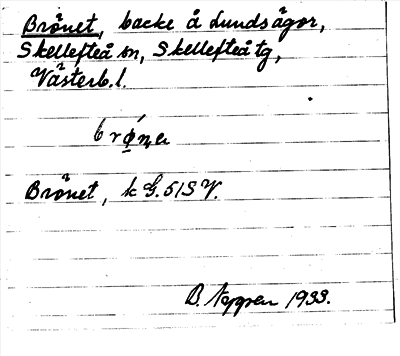 Brånet, backe å Lundsågor,
Skellefteå sn, Skellefteå tg,
Västerb. l.
Brånet, k G. 51 S V.
B. Nygren 1933.